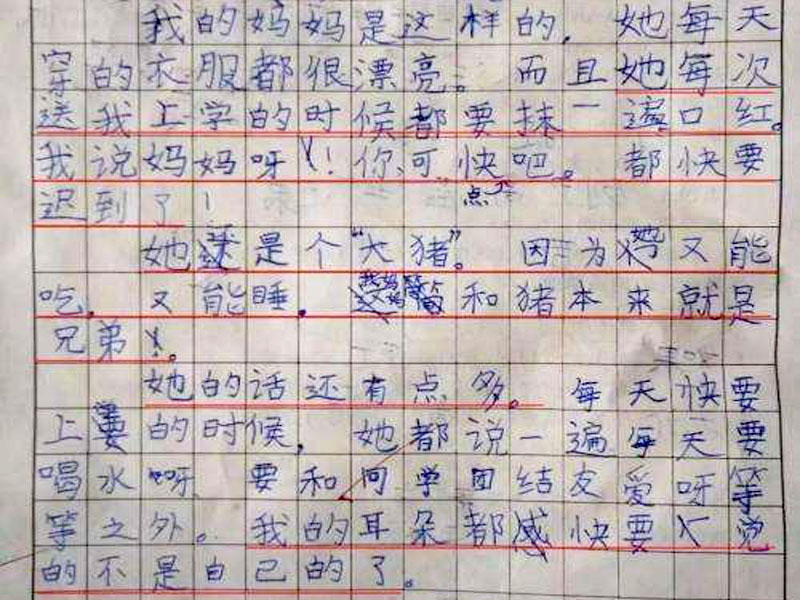 我的妈妈是这样的，她每天
穿的衣服都很漂亮。而且她每次
送我上学的时候都要抹一遍口红。
我说妈妈呀！你可快点吧。都快要
迟到了！
她还是个“大猪”。因为她又能
吃，又能睡。我妈妈和猪本来就是
兄弟。
她的话还有点多。每天快要
上学的时候，她都说一遍每天要
喝水呀，要和同学团结友爱呀等
等之外。我的耳朵都快要觉
的不是自己的了。